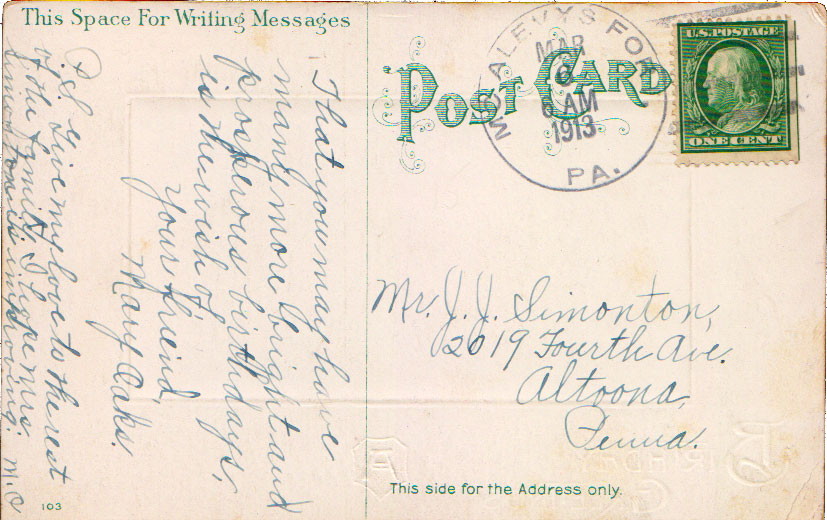 This Space For Writing Messages
That you may have
many more bright and
prosperous birthdays,
is the wish of
Your friend
Mary Oaks.
P.S. Give my love to the rest
of the family. I hope Mrs.
Simonton is improving. M.O
103
POST CARD
McALEVYS FORT
MAR
6 AM
1913
PA.
U.S. POSTAGE
ONE CENT
Mr. J. J. Simonton,
2019 Fourth Ave.
Altoona,
Penna.
This side for the Address only.